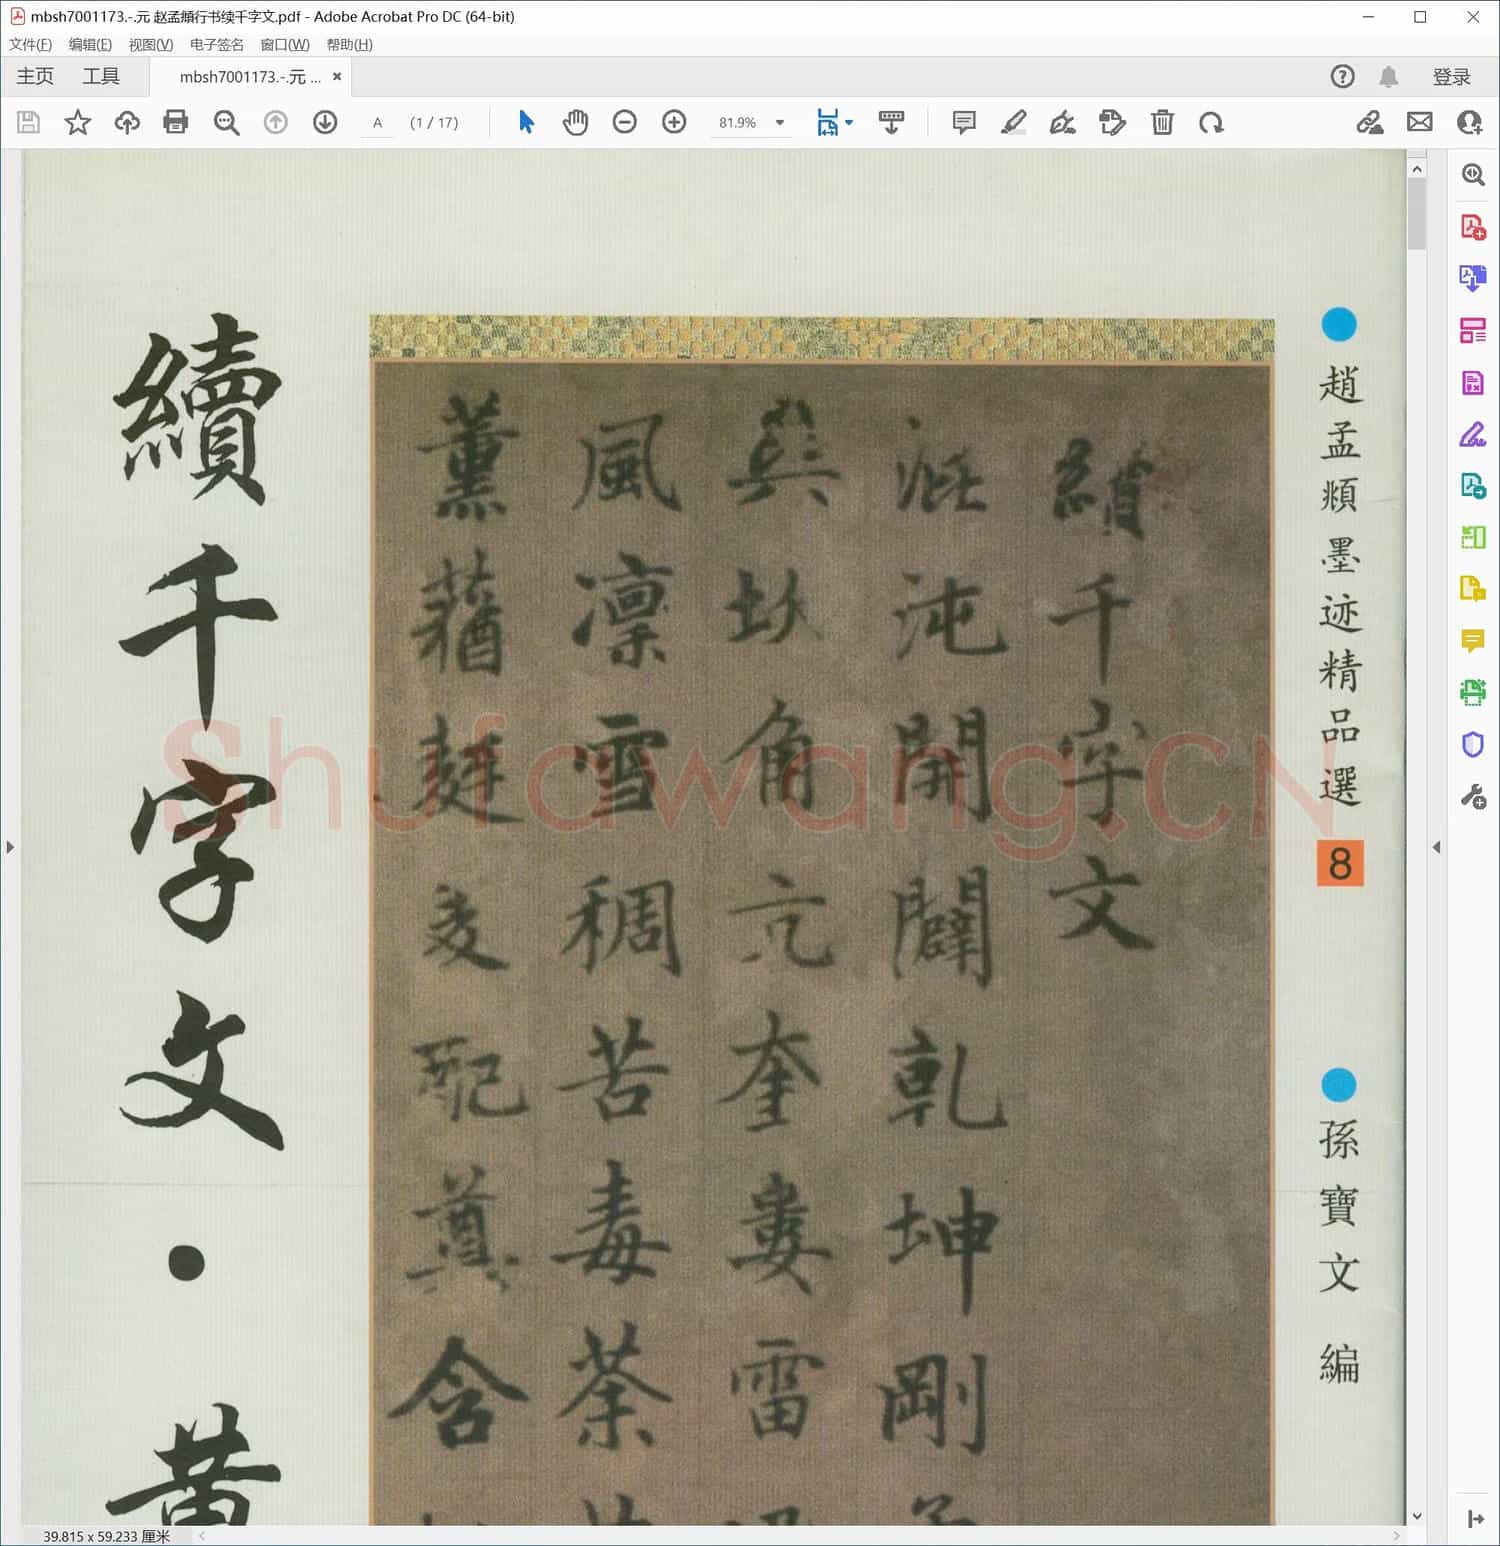 mbsh7001173.-.元 赵孟頫行书续千字文.pdf - Adobe Acrobat Pro DC (64-bit)
文件(F) 编辑(E) 视图(V) 电子签名 窗口(W) 帮助(H)
主页 工具 mbsh7001173.-.元 ... × 登录
A (1 / 17) 81.9%
趙孟頫墨迹精品選 8
孫寶文 編
續千字文
混沌開闢乾坤剛
奎婁雷
風凛雪稠苦毒荼
含
續千字文·黄
Shufawang.CN
39.815 x 59.233 厘米